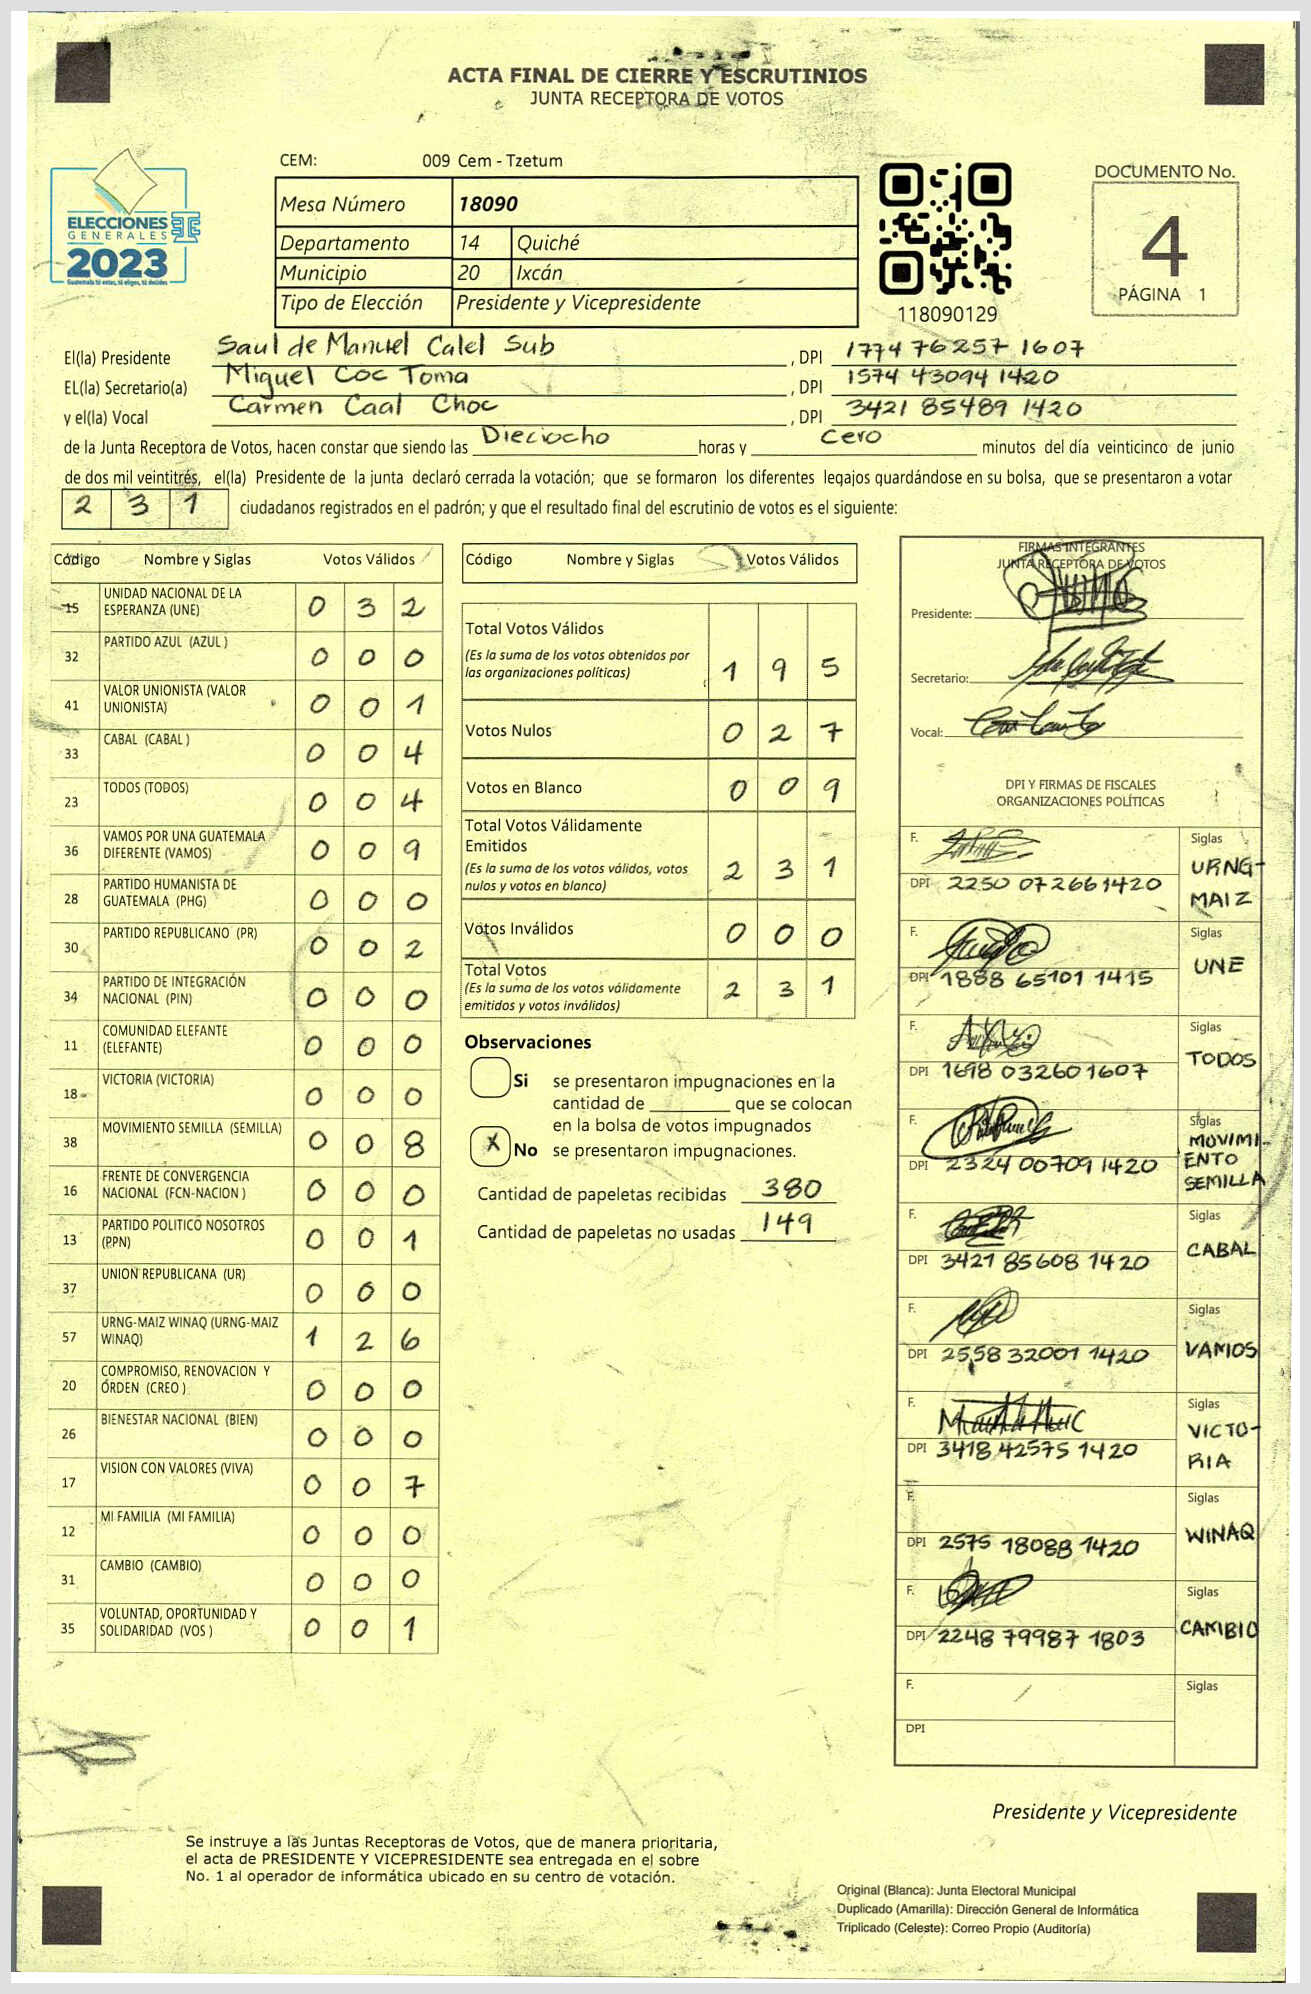 ACTA FINAL DE CIERRE Y ESCRUTINIOS
JUNTA RECEPTORA DE VOTOS
CEM: 009 Cem - Tzetum
ELECCIONES
GENERALES
2023
Guatemala tú eres, tú eliges, tú decides
Mesa Número 18090
Departamento 14 Quiché
Municipio 20 Ixcán
Tipo de Elección Presidente y Vicepresidente
118090129
DOCUMENTO No.
4
PÁGINA 1
El(la) Presidente Saul de Manuel Calel Sub , DPI 1774 76257 1607
EL(la) Secretario(a) Miguel Coc Toma , DPI 1574 43094 1420
y el(la) Vocal Carmen Caal Choc , DPI 3421 85489 1420
de la Junta Receptora de Votos, hacen constar que siendo las Dieciocho horas y Cero minutos del día veinticinco de junio
de dos mil veintitrés, el(la) Presidente de la junta declaró cerrada la votación; que se formaron los diferentes legajos guardándose en su bolsa, que se presentaron a votar
2 3 1 ciudadanos registrados en el padrón; y que el resultado final del escrutinio de votos es el siguiente:
Código Nombre y Siglas Votos Válidos
15 UNIDAD NACIONAL DE LA
ESPERANZA (UNE) 0 3 2
32 PARTIDO AZUL (AZUL ) 0 0 0
41 VALOR UNIONISTA (VALOR
UNIONISTA) 0 0 1
33 CABAL (CABAL ) 0 0 4
23 TODOS (TODOS) 0 0 4
36 VAMOS POR UNA GUATEMALA
DIFERENTE (VAMOS) 0 0 9
28 PARTIDO HUMANISTA DE
GUATEMALA (PHG) 0 0 0
30 PARTIDO REPUBLICANO (PR) 0 0 2
34 PARTIDO DE INTEGRACIÓN
NACIONAL (PIN) 0 0 0
11 COMUNIDAD ELEFANTE
(ELEFANTE) 0 0 0
18 VICTORIA (VICTORIA) 0 0 0
38 MOVIMIENTO SEMILLA (SEMILLA) 0 0 8
16 FRENTE DE CONVERGENCIA
NACIONAL (FCN-NACION ) 0 0 0
13 PARTIDO POLITICO NOSOTROS
(PPN) 0 0 1
37 UNION REPUBLICANA (UR) 0 0 0
57 URNG-MAIZ WINAQ (URNG-MAIZ
WINAQ) 1 2 6
20 COMPROMISO, RENOVACION Y
ÓRDEN (CREO ) 0 0 0
26 BIENESTAR NACIONAL (BIEN) 0 0 0
17 VISION CON VALORES (VIVA) 0 0 7
12 MI FAMILIA (MI FAMILIA) 0 0 0
31 CAMBIO (CAMBIO) 0 0 0
35 VOLUNTAD, OPORTUNIDAD Y
SOLIDARIDAD (VOS ) 0 0 1
Código Nombre y Siglas Votos Válidos
Total Votos Válidos
(Es la suma de los votos obtenidos por
las organizaciones políticas) 1 9 5
Votos Nulos 0 2 7
Votos en Blanco 0 0 9
Total Votos Válidamente
Emitidos
(Es la suma de los votos válidos, votos
nulos y votos en blanco) 2 3 1
Votos Inválidos 0 0 0
Total Votos
(Es la suma de los votos válidamente
emitidos y votos inválidos) 2 3 1
Observaciones
Si se presentaron impugnaciones en la
cantidad de ________ que se colocan
en la bolsa de votos impugnados
X No se presentaron impugnaciones.
Cantidad de papeletas recibidas 380
Cantidad de papeletas no usadas 149
FIRMAS INTEGRANTES
JUNTA RECEPTORA DE VOTOS
Presidente:
Secretario:
Vocal:
DPI Y FIRMAS DE FISCALES
ORGANIZACIONES POLÍTICAS
F. Siglas
DPI 2250 07266 1420 URNG-
MAIZ
F. Siglas
DPI 1888 65101 1415 UNE
F. Siglas
DPI 1698 03260 1607 TODOS
F. Siglas
DPI 2324 00709 1420 MOVIMI-
ENTO
SEMILLA
F. Siglas
DPI 3421 85608 1420 CABAL
F. Siglas
DPI 2558 32001 1420 VAMOS
F. Siglas
DPI 3418 42575 1420 VICTO-
RIA
F. Siglas
DPI 2575 18088 1420 WINAQ
F. Siglas
DPI 2248 79987 1803 CAMBIO
F. Siglas
DPI
Presidente y Vicepresidente
Se instruye a las Juntas Receptoras de Votos, que de manera prioritaria,
el acta de PRESIDENTE Y VICEPRESIDENTE sea entregada en el sobre
No. 1 al operador de informática ubicado en su centro de votación.
Original (Blanca): Junta Electoral Municipal
Duplicado (Amarilla): Dirección General de Informática
Triplicado (Celeste): Correo Propio (Auditoría)